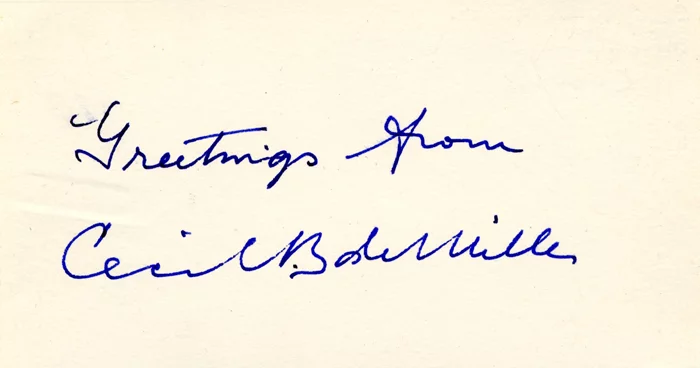 Greetings from
Cecil B. deMille